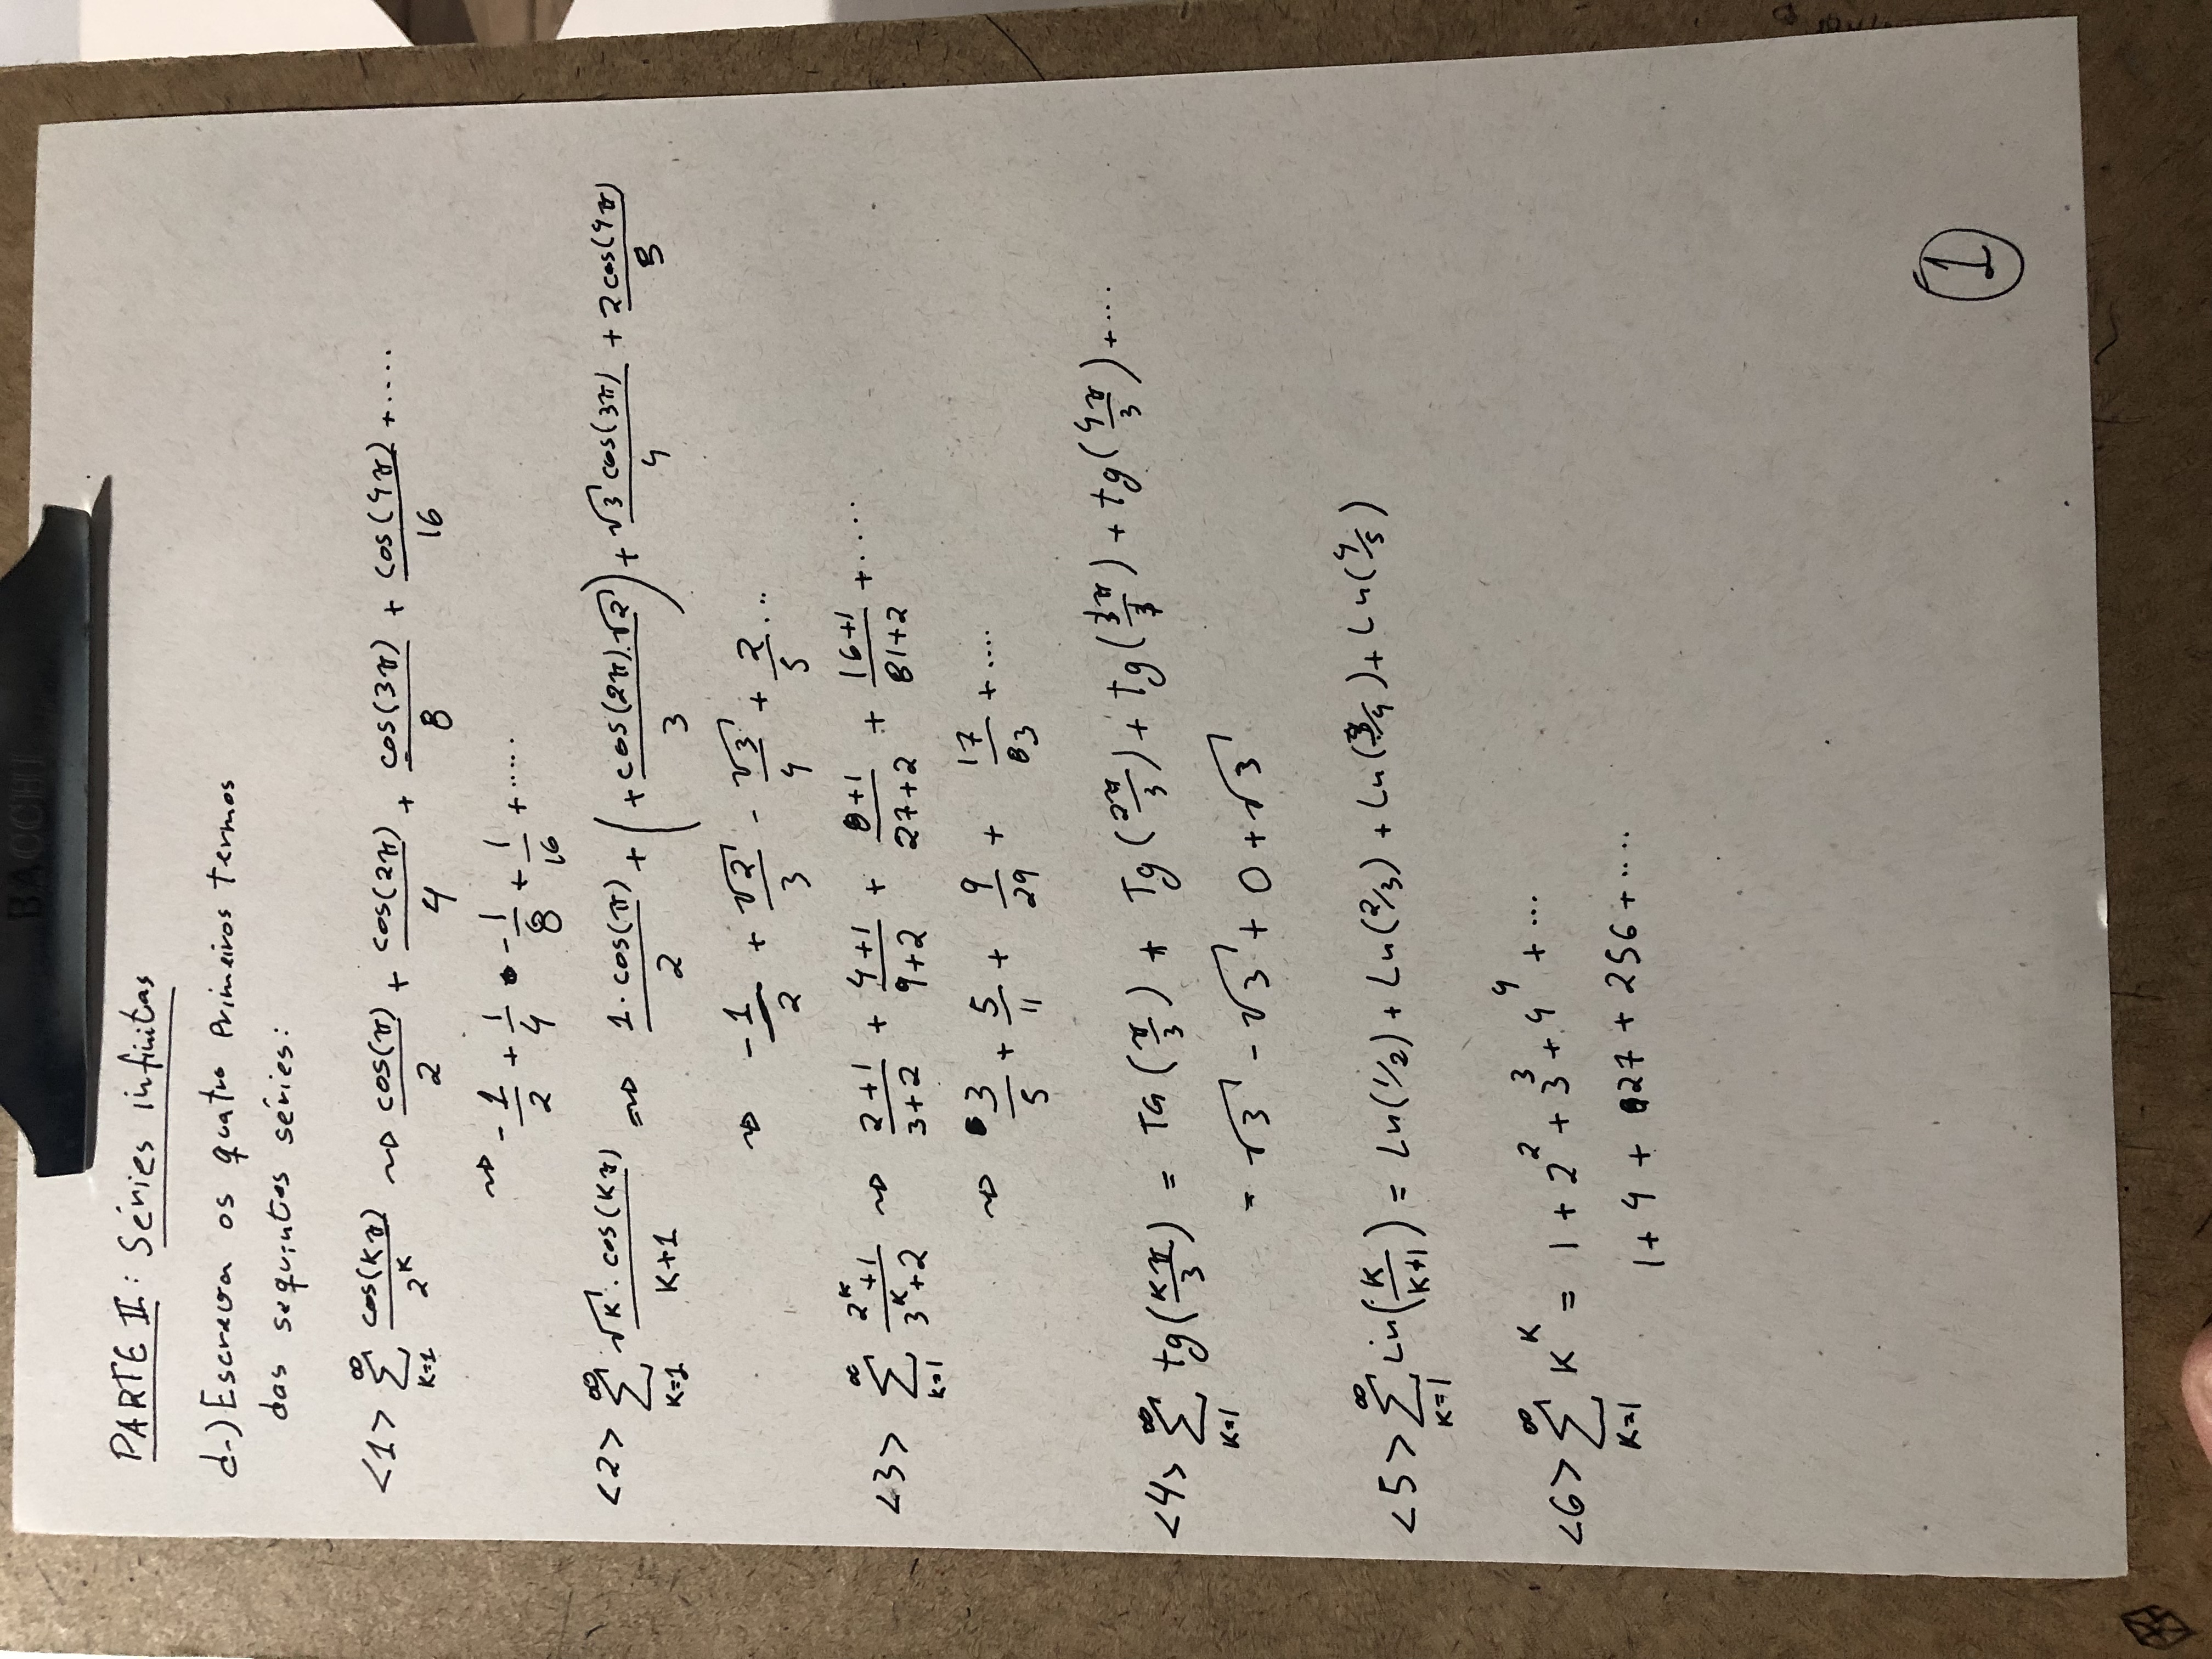 BACCHI
PARTE II: Séries infinitas
d-) Escreva os quatro primeiros termos
das seguintes séries:
<1> ∑_{k=1}^{∞} cos(kπ)/2^k ⇝ cos(π)/2 + cos(2π)/4 + cos(3π)/8 + cos(4π)/16 + ....
⇝ -1/2 + 1/4 - 1/8 + 1/16 + .....
<2> ∑_{k=1}^{∞} √k · cos(kπ)/(k+1) ⇝ 1·cos(π)/2 + (+cos(2π).√2/3) + √3 cos(3π)/4 + 2cos(4π)/5
⇝ -1/2 + √2/3 - √3/4 + 2/5 ...
<3> ∑_{k=1}^{∞} (2^k+1)/(3^k+2) ⇝ (2+1)/(3+2) + (4+1)/(9+2) + (8+1)/(27+2) + (16+1)/(81+2) + ....
⇝ 3/5 + 5/11 + 9/29 + 17/83 + ....
<4> ∑_{k=1}^{∞} tg(kπ/3) = TG(π/3) + Tg(2π/3) + tg(3π/3) + tg(4π/3) + ...
= √3 - √3 + 0 + √3
<5> ∑_{k=1}^{∞} Ln(k/(k+1)) = Ln(1/2) + Ln(2/3) + Ln(3/4) + Ln(4/5)
<6> ∑_{k=1}^{∞} k^k = 1 + 2^2 + 3^3 + 4^4 + ...
1 + 4 + 27 + 256 + ....
1